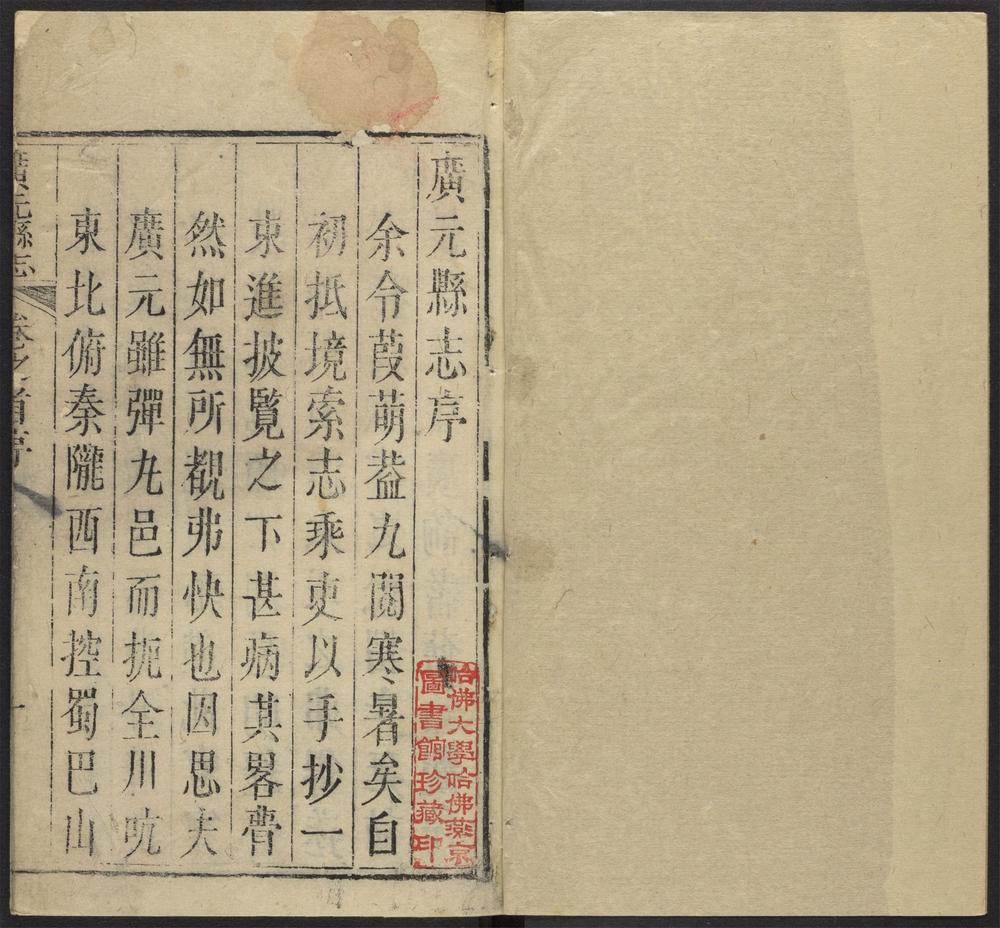 廣元縣志序
余令葭萌葢九閱寒暑矣自
初抵境索志乘吏以手抄一
東進披覽之下甚病其畧瞢
然如無所覩弗快也因思夫
廣元雖彈丸邑而扼全川吭
東北俯秦隴西南控蜀巴山
廣元縣志
卷之首序
一
哈佛大學哈佛燕京
圖書館珍藏印